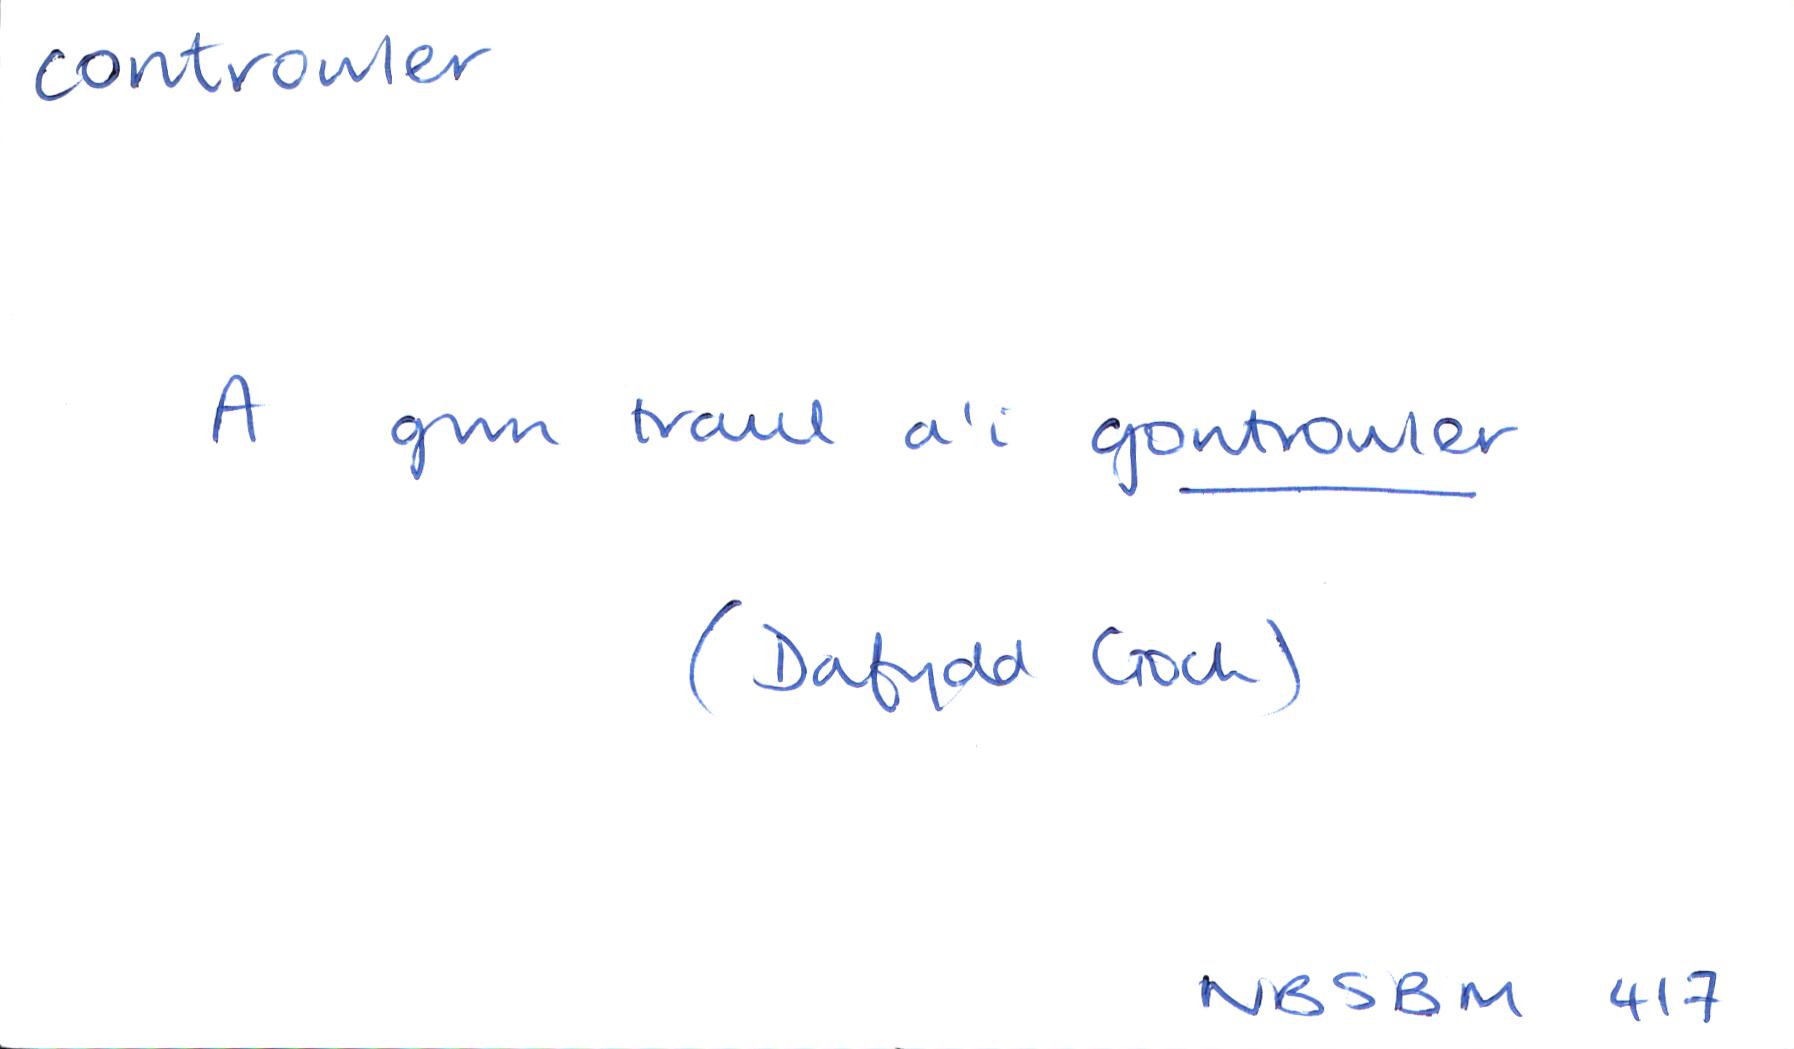 controwler
A gwn trawl a'i gontrowler
(Dafydd Goch)
NBSBM 417